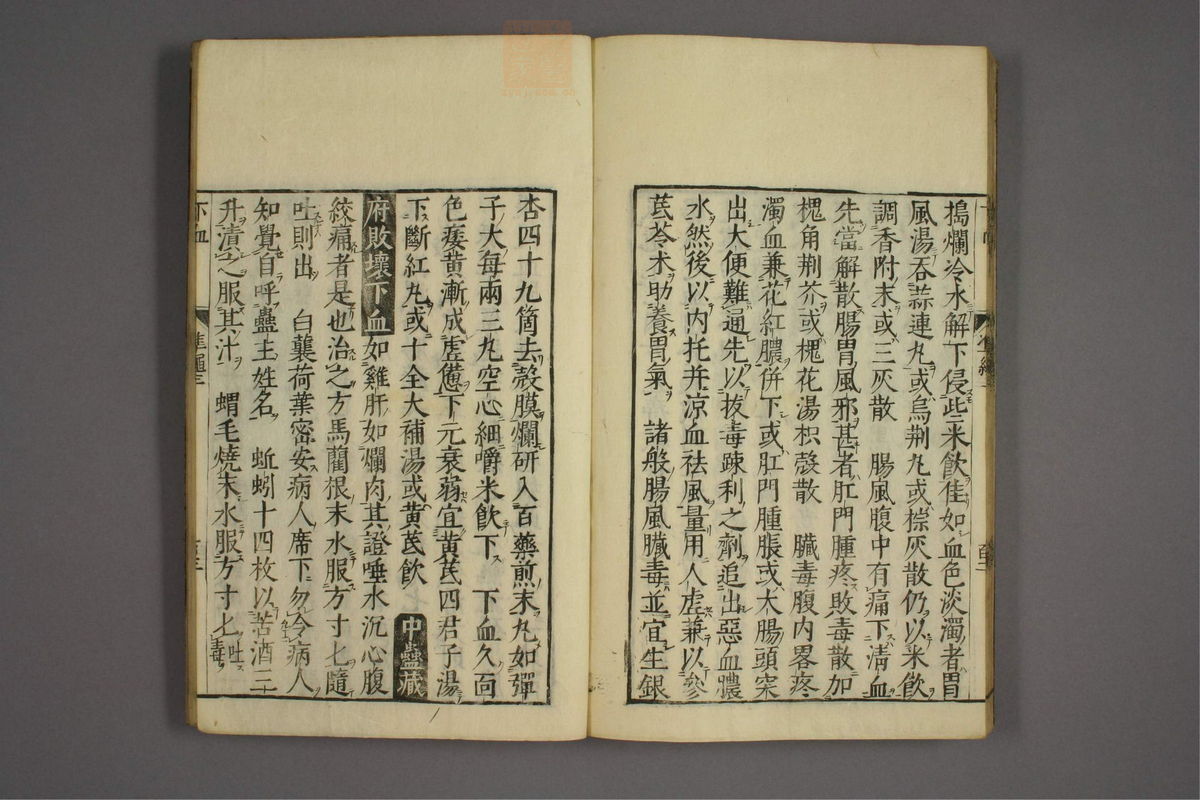 搗爛冷水解下侵些米飲佳如血色淡濁者胃
風湯吞蒜連丸或烏荆丸或棕灰散仍以米飲
調香附末或三灰散　腸風腹中有痛下淸血
先當解散腸胃風邪甚者肛門腫疼敗毒散加
槐角荆芥或槐花湯枳殼散　臟毒腹内畧疼
濁血兼花紅膿併下或肛門腫脹或大腸頭突
出大便難通先以拔毒疎利之劑追出惡血膿
水然後以内托并涼血祛風量用人虚兼以參
芪苓术助養胃氣　諸般腸風臟毒並宜生銀
杏四十九箇去殼膜爛研入百藥煎末丸如彈
子大每兩三丸空心細嚼米飲下　下血久靣
色痿黄漸成虚憊下元衰弱宜黄芪四君子湯
下斷紅丸或十全大補湯或黄芪飲　中蠱藏
府敗壞下血如雞肝如爛肉其證唾水沉心腹
絞痛者是也治之方馬藺根末水服方寸匕隨
吐則出　白蘘荷葉密安病人席下勿令病人
知覺自呼蠱主姓名　蚯蚓十四枚以苦酒三
升漬之服其汁　蝟毛燒末水服方寸匕吐毒
下血
準繩三
百三